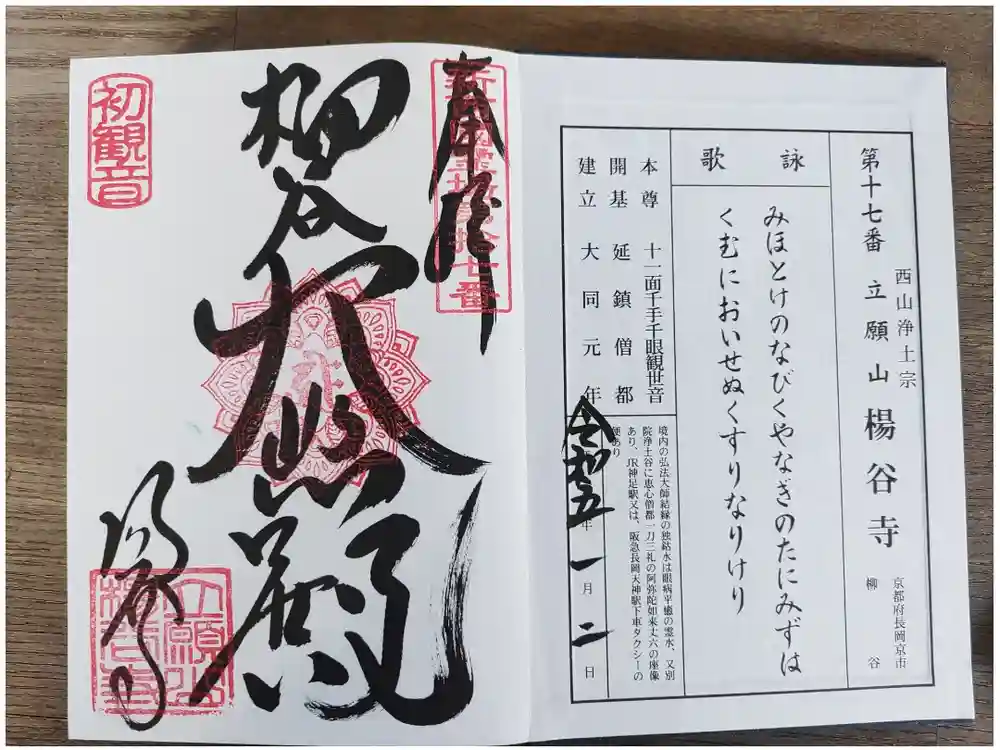 第十七番
西山浄土宗
立願山 楊谷寺
京都府長岡京市
柳谷
詠歌
みほとけのなびくやなぎのたにみずは
くむにおいせぬくすりなりけり
本尊 十一面千手千眼観世音
開基 延鎮僧都
建立 大同元年
境内の弘法大師結縁の独鈷水は眼病平癒の霊水、又別
院浄土谷に恵心僧都一刀三礼の阿弥陀如来丈六の座像
あり、JR神足駅又は、阪急長岡天神駅下車タクシーの
便あり
令和五年一月二日
奉拝
柳谷
大悲殿
初観音
楊谷寺
立願山
楊谷寺